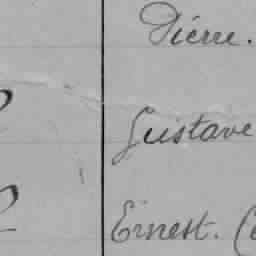 Pierre.
Gustave
Ernest. (